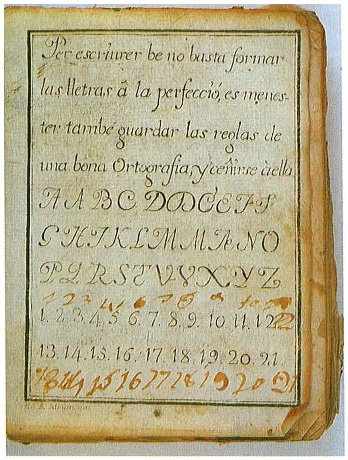 Per escriurer be no basta formar
las lletras â la perfecció, es menes-
ter també guardar las reglas de
una bona Ortografia, y ceñirse á ella
A A B C D D E E F F
G H I K L M M Æ N O
P Q R S T U V X Y Z
1 2 3 4 6 7 8 9 10 11
1. 2. 3. 4. 5 6. 7. 8. 9. 10. 11. 12 22
13. 14. 15. 16. 17. 18. 19. 20. 21
13 14 15 16 17 18 19 20 21